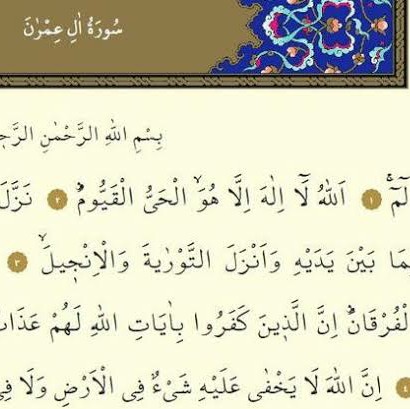 سُورَةُ اٰلِ عِمْرٰنَ
بِسْمِ اللّٰهِ الرَّحْمٰنِ
الٓمٓ ۚ ﴿١﴾ اَللّٰهُ لَٓا اِلٰهَ اِلَّا هُوَۙ الْحَيُّ الْقَيُّومُۜ ﴿٢﴾ نَزَّلَ
بَيْنَ يَدَيْهِ وَاَنْزَلَ التَّوْرٰيةَ وَالْاِنْج۪يلَۙ ﴿٣﴾
الْفُرْقَانَۜ اِنَّ الَّذ۪ينَ كَفَرُوا بِاٰيَاتِ اللّٰهِ لَهُمْ عَذَابٌ
﴿٤﴾ اِنَّ اللّٰهَ لَا يَخْفٰى عَلَيْهِ شَيْءٌ فِي الْاَرْضِ وَلَا فِي